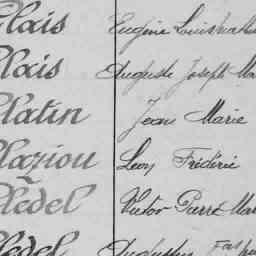 Plais Eugène Louis
Plais Auguste Joseph
Platin Jean Marie
Plaziou Léon Frédéric
Plédel Victor Pierre Mar
Plédel